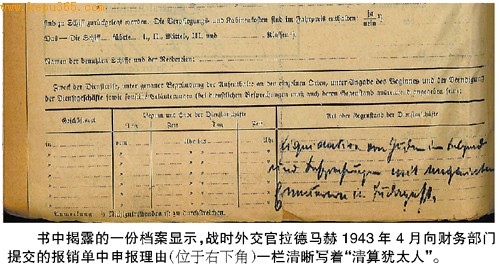 sind zu Schiff zurückgelegt worden. Die Verpflegungs- und Kabinenkosten sind im Fahrpreis enthalten: ja
nein
Das — Die Schiff
I., II., Mittel, III. und
Klasse
Namen der benutzten Schiffe und der Reedereien:
Zweck der Dienstreise, unter genauer Begründung der Aufenthalte an den einzelnen Orten, unter Angabe des Beginnes und der Beendigung
der Dienstgeschäfte sowie
Geschäftsort
Beginn und Ende der Dienstgeschäfte
Art oder Gegenstand der Dienstgeschäfte
Tag
Uhr
Tag
Uhr
in
Liquidation von Juden in Belgrad
und Besprechungen mit ungarischen
Emissären in Budapest.
Anmerkung: Nichtzutreffendes ist zu durchstreichen.
书中揭露的一份档案显示,战时外交官拉德马赫1943年4月向财务部门
提交的报销单中申报理由(位于右下角)一栏清晰写着“清算犹太人”。